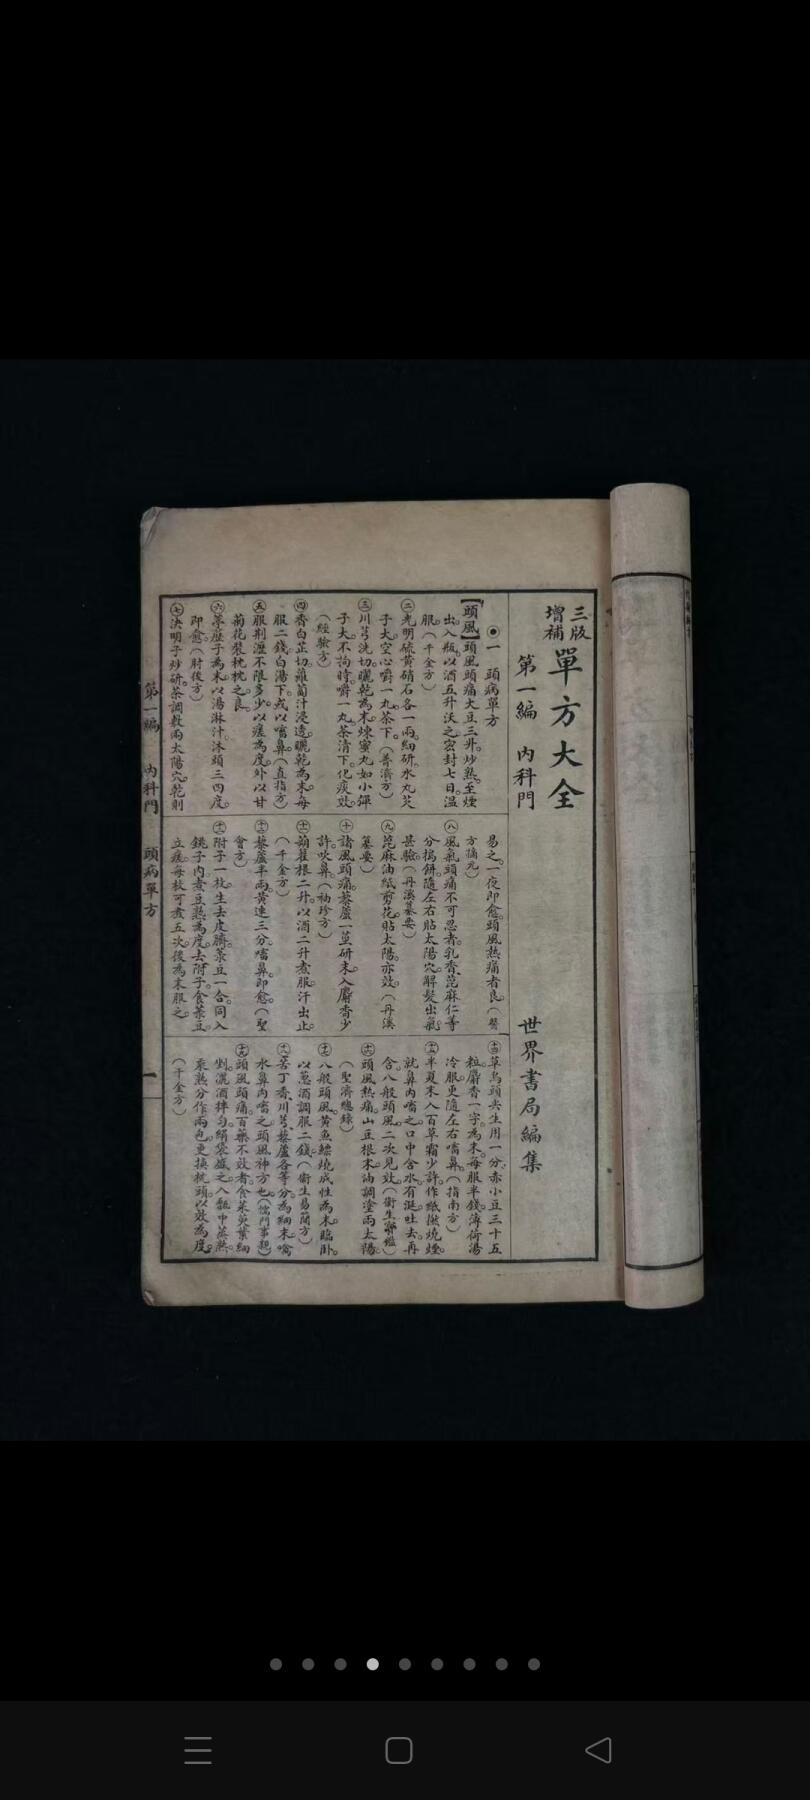 三版
增補
單方大全
第一編　內科門
世界書局編集
◉一　頭病單方
【頭風】頭風頭痛大豆三升。炒熟。至煙
出。入瓶。以酒五升沃之。密封七日。溫
服。（千金方）
㊁光明硫黃硝石各一兩。細研。水丸芡
子大。空心嚼一丸。茶下。（普濟方）
㊂川芎洗切。曬乾為末。煉蜜丸如小彈
子大。不拘時。嚼一丸。茶清下。化痰效。
（經驗方）
㊃香白芷切。蘿蔔汁浸透。曬乾為末。每
服二錢。白湯下。或以㗜鼻。（直指方）
㊄服荆瀝不限多少。以瘥為度。外以甘
菊花裝枕枕之良。
㊅葶藶子為末。以湯淋汁沐頭三四度
即愈。（肘後方）
㊆決明子炒研。茶調敷兩太陽穴。乾則
易之。一夜即愈。頭風熱痛者良。（醫
方摘元）
㊇風氣頭痛不可忍者。乳香、萆麻仁等
分。搗餅隨左右貼太陽穴。解髮出氣。
甚驗。（丹溪纂要）
㊈萆麻油紙剪花貼太陽。亦效。（丹溪
纂要）
㊉諸風頭痛。藜蘆一莖研末。入麝香少
許。吹鼻。（袖珍方）
蒴藋根二升。以酒二升煮服。汗出止。
（千金方）
藜蘆半兩。黃連三分。㗜鼻即愈。（聖
會方）
附子一枚。生去皮臍。菉豆一合。同入
銚子內煮豆熟為度。去附子。食菉豆。
立瘥。每枚可煮五次。後為末服之。
草烏頭尖生用一分。赤小豆三十五
粒。麝香一字。為末。每服半錢。薄荷湯
冷服。更隨左右㗜鼻。（指南方）
半夏末入百草霜少許。作紙撚燒煙。
就鼻內㗜之。口中含水。有涎吐去再
含。八般頭風。二次見效。（衛生寶鑑）
頭風熱痛。山豆根末。油調塗兩太陽。
（聖濟總錄）
八般頭風。黃魚鰾燒成性為末。臨卧
以葱酒調服二錢。（衛生易簡方）
苦丁香、川芎、藜蘆各等分為細末。噙
水鼻內㗜之。頭風神方也。（儒門事親）
頭風頭痛。百藥不效者。食茱萸葉細
剉。灑酒拌勻。絹袋盛之。入甑中蒸熟。
乘熟分作兩包。更換枕頭。以效為度。
（千金方）
第一編　內科門　頭病單方
一